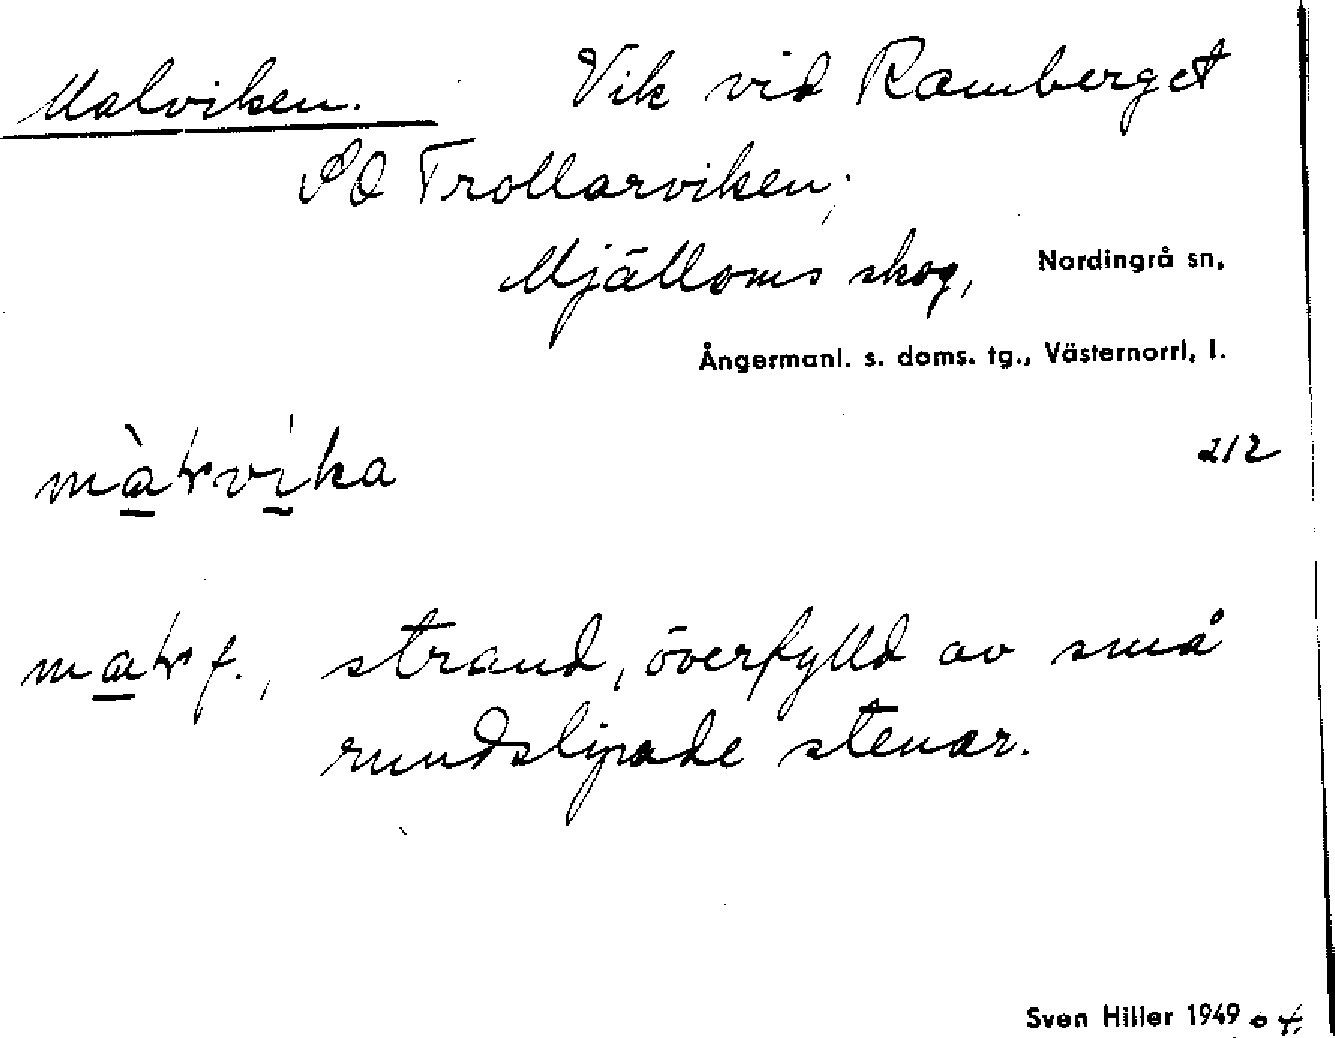 Malviken. Vik vid Ramberget
SO Trollarviken;
Mjälloms skog, Nordingrå sn,
Ångermanl. s. doms. tg., Västernorrl. l.
212
f., strand, överfylld av små
rundslipade stenar.
Sven Hiller 1949